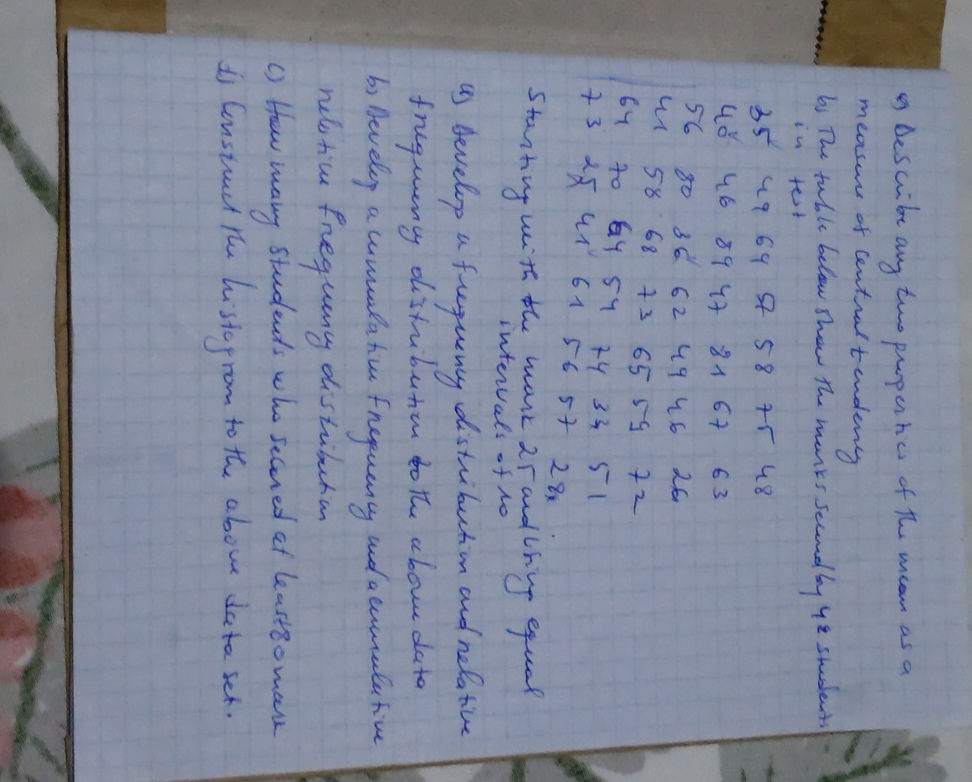 a) Describe any two properties of the mean as a
measure of central tendency
b) The table below show the marks scored by 42 students
in test
25 49 64 57 58 75 48
40 46 89 47 81 67 63
56 80 86 62 49 46 26
41 58 68 73 65 59 72
64 70 64 54 74 34 51
73 25 41 61 56 57 28
Starting with the mark 25 and using equal
intervals of 10
a) Develop a frequency distribution and relative
frequency distribution to the above data
b) Develop a cumulative frequency and a cumulative
relative frequency distribution
c) How many students who scored at least 80 mark
d) Construct the histogram to the above data set.